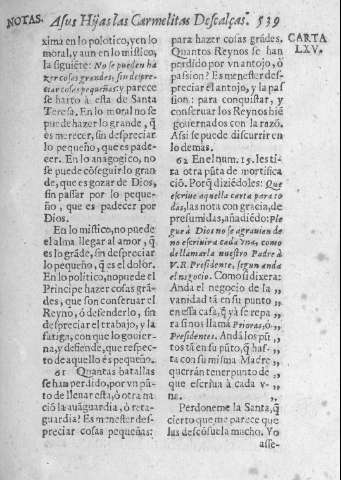 NOTAS. A sus Hijas las Carmelitas Descalças. 539
xima en lo polotico, y en lo
moral, y aun en lo mistico,
la siguiẽte: No se pueden ha
zer cosas grandes, sin despre-
ciar cosas pequeñas: y parece
se harto à esta de Santa
Teresa. En lo moral no se
puede hazer lo grande, q̃
es merecer, sin despreciar
lo pequeño, que es pade-
cer. En lo anagogico, no
se puede cõseguir lo gran-
de, que es gozar de Dios,
sin passar por lo peque-
ño, que es padecer por
Dios.
En lo mistico, no puede
el alma llegar al amor, q̃
es lo grãde, sin despreciar
lo pequeño, q̃ es el dolor.
En lo politico, no puede el
Principe hazer cosas grã-
des, que son conseruar el
Reyno, ò defenderlo, sin
despreciar el trabajo, y la
fatiga, con que lo gouier-
na, y defiende, que respec-
to de aquello es pequeño.
61 Quantas batallas
se han perdido, por vn pũ-
to de llenar esta, ò otra na-
ciõ la auãguardia, ò reta-
guardia? Es menester des-
preciar cosas pequeñas:
para hazer cosas grãdes.
Quantos Reynos se han
perdido por vn antojo, ò
passion? Es menester des-
preciar el antojo, y la pas
sion: para conquistar, y
conseruar los Reynos biẽ
gouernados con la razõ.
Assi se puede discurrir en
lo demàs.
62 En el num. 15. les ti-
ra otra pũta de mortifica
ciõ. Porq̃ diziẽdoles: Que
escriue aquella carta para to
das, las nota con gracia, de
presumidas, añadiẽdo: Ple
gue à Dios no se agrauien de
no escriuira cada vna, como
de llamarla nuestro Padre à
V. R. Presidente, segun anda
el negocio. Como si dixera:
Anda el negocio de la „
vanidad tã en su punto „
en essa casa, q̃ yà se repa „
ra si nos llamã Prioras, ò „
Presidentes. Andã los pũ „
tos tã en su pũto, q̃ has- „
ta con su misma Madre „
querràn tener punto de „
que escriua à cada v- „
na. „
Perdoneme la Santa, q̃
cierto que me parece que
las descõsuela mucho. Yo
asse-
CARTA
LXV.